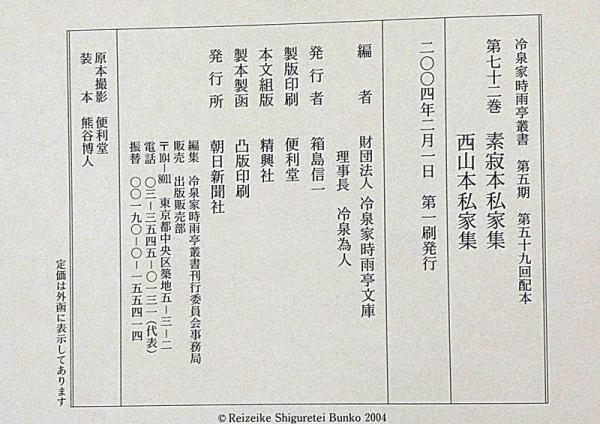 冷泉家時雨亭叢書　第五期　第五十九回配本
第七十二巻　素寂本私家集
西山本私家集
二〇〇四年二月一日　第一刷発行
編者　財団法人 冷泉家時雨亭文庫
理事長　冷泉為人
発行者　箱島信一
製版印刷　便利堂
本文組版　精興社
製本製函　凸版印刷
発行所　朝日新聞社
編集　冷泉家時雨亭叢書刊行委員会事務局
販売　出版販売部
〒104－8011　東京都中央区築地五－三－二
電話　〇三－三五四五－〇一三一（代表）
振替　〇〇一九〇－〇－一五五四一四
原本撮影　便利堂
装本　熊谷博人
定価は外函に表示してあります
© Reizeike Shiguretei Bunko 2004